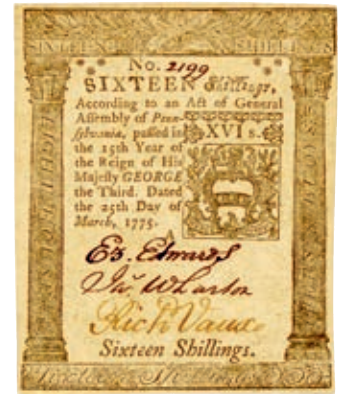 SIXTEEN SHILLINGS
No. 2199
SIXTEEN Shillings,
According to an Act of General
Assembly of Penn-
sylvania, passed in
the 15th Year of
the Reign of His
Majesty GEORGE
the Third. Dated
the 25th Day of
March, 1775.
XVI s.
A
Ez. Edwards
Jas. Wharton
Rich Vaux
Sixteen Shillings.
Sixteen Shillings